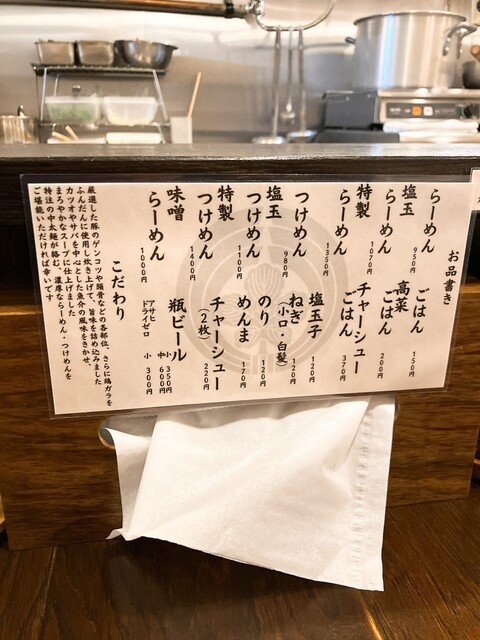 お品書き
らーめん 950円
塩玉
らーめん 1070円
特製
らーめん 1350円
つけめん 980円
塩玉
つけめん 1100円
特製
つけめん 1400円
味噌
らーめん 1000円
ごはん 150円
高菜
ごはん 200円
チャーシュー
ごはん 370円
塩玉子 120円
ねぎ 120円
(小口・白髪)
のり 120円
めんま 170円
チャーシュー 220円
(2枚)
瓶ビール 小 350円
中 600円
アサヒ
ドライゼロ 小
こだわり
厳選した豚のゲンコツや頭骨などの各部位、さらに鶏ガラを
ふんだんに使用し炊き上げて、旨味を詰め込みました
カツオやサバを中心とした魚介の風味をきかせ、
まろやかなスープに仕上げました
特注の中太麺が絡む、濃厚ならーめん・つけめんを
ご堪能いただければ幸いです